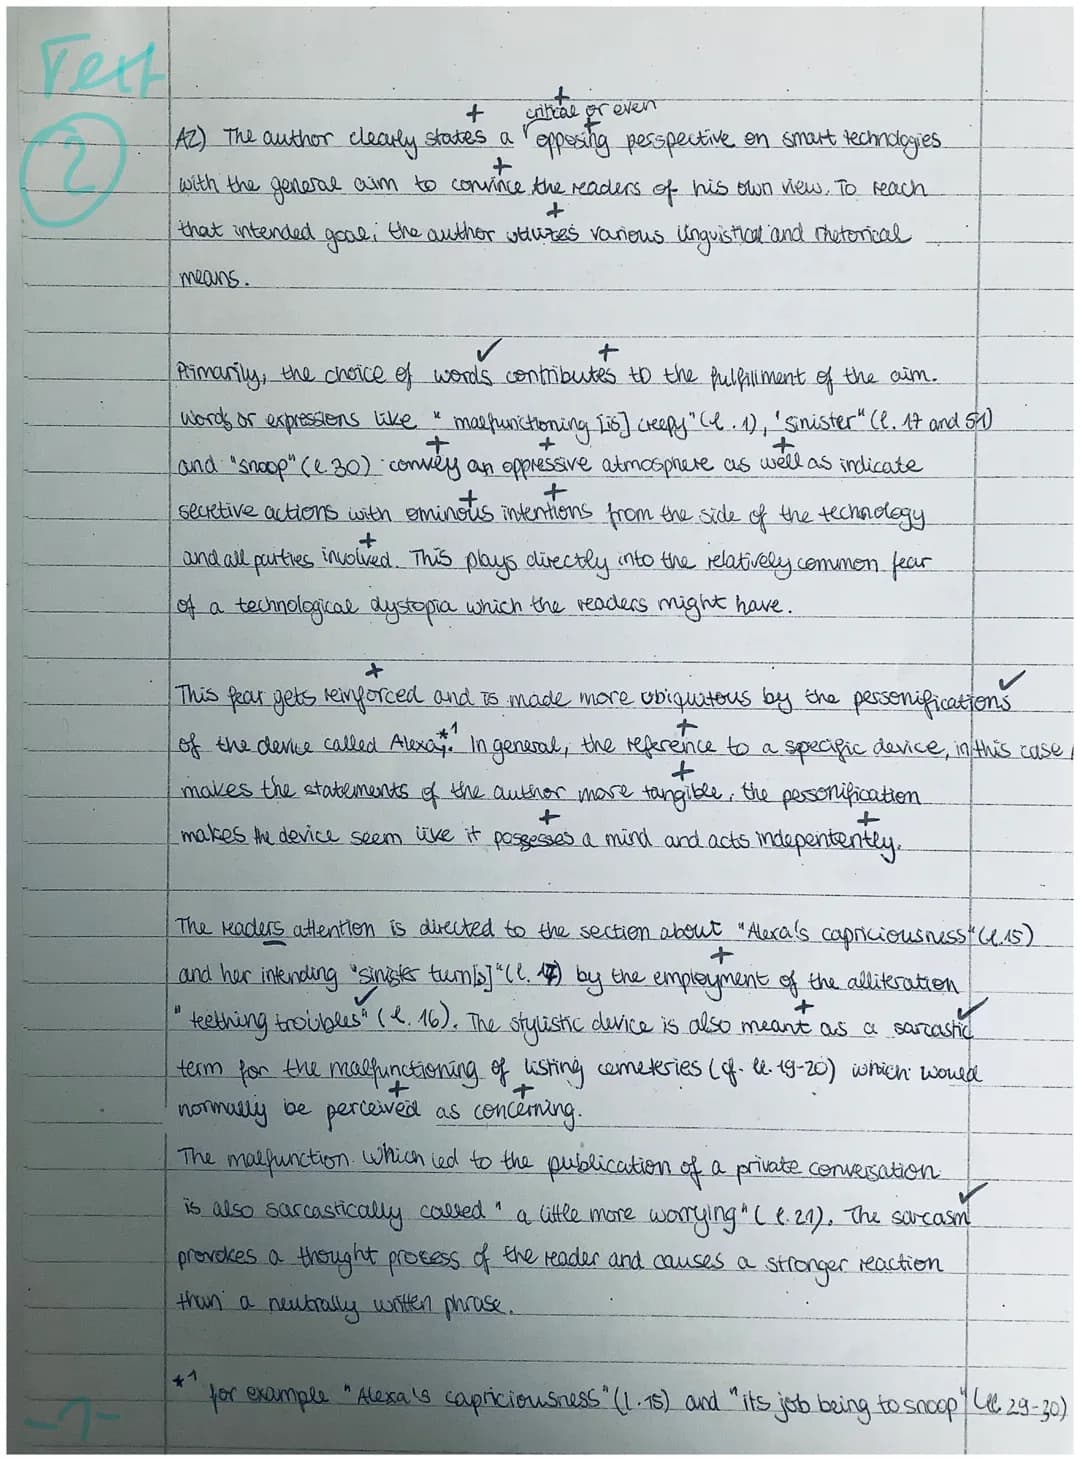 Text
2
critical or even
A2) The author clearly states a opposing perspective on smart technologies
with the general aim to convince the readers of his own view. To reach
that intended goal, the author utilizes various linguistical and rhetorical
means.
Primarily, the choice of words contributes to the fulfillment of the aim.
Words or expressions like "malfunctioning [is] creepy" (l. 1), "sinister" (l. 17 and 51)
and "snoop" (l. 30) convey an oppressive atmosphere as well as indicate
secretive actions with ominous intentions from the side of the technology
and all parties involved. This plays directly into the relatively common fear
of a technological dystopia which the readers might have.
This fear gets reinforced and is made more ubiquitous by the personifications
of the device called Alexa*1. In general, the reference to a specific device, in this case,
makes the statements of the author more tangible, the personification
makes the device seem like it possesses a mind and acts indepentently.
The readers attention is directed to the section about "Alexa's capriciousness" (l. 15)
and her intending "sinister turn[s]" (l. 17) by the employment of the alliteration
"teething troubles" (l. 16). The stylistic device is also meant as a sarcastic
term for the malfunctioning of listing cemeteries (cf. ll. 19-20) which would
normally be perceived as concerning.
The malfunction which led to the publication of a private conversation
is also sarcastically called "a little more worrying" (l. 21). The sarcasm
provokes a thought process of the reader and causes a stronger reaction
than a neutrally written phrase.
*1 for example "Alexa's capriciousness" (l. 15) and "its job being to snoop" (ll. 29-30)
-7-